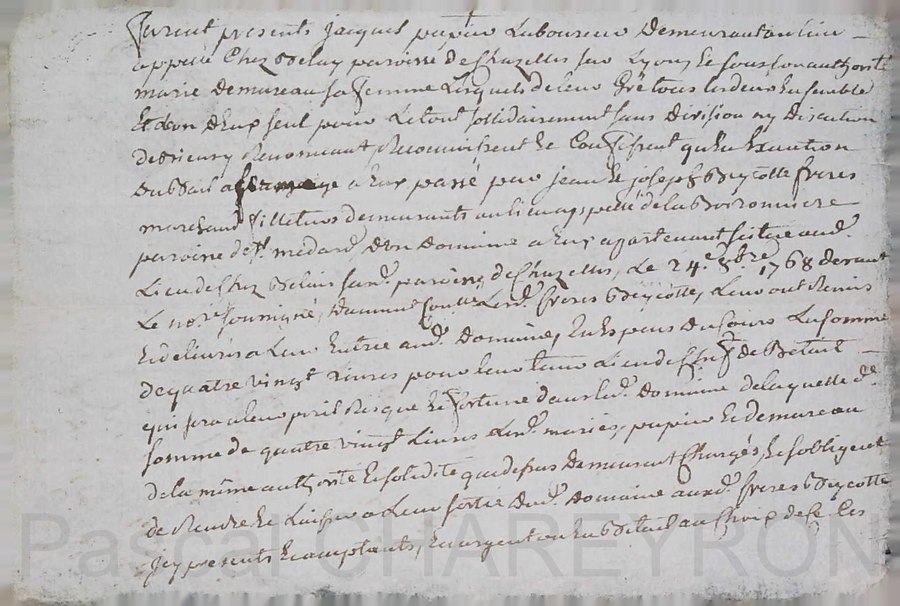 furent presents jacques papin Laboureur demeurant au lieu
appellé Chez Belay paroisse de Chazelles sur Lyon, et sous son authorité
marie demureau sa femme Lesquels de leur gré tous les deux Ensemble
Et d'un d'Eux seul pour Le tout sollidairement sans division ny discution
de Renonceant Reconnoissent et Confessent qu'En Execution
du Bail a ferme a Eux passé par jean et joseph freres
marchand demeurants au lieu appellé de la
paroisse de St. medard, d'un domaine a Eux apartenant scitué aud.
Lieu de Chez Belais susd. paroisse de Chazelles, Le 24e. 8bre 1768 devant
Le nore. soussigné, Lesd. freres Leur ont Remis
Et delivrés a Leur Entrée aud. domaine, En Especes du Cours La somme
de quatre vingt Livres pour leur tenir Lieu de de Betail
qui sera a leur peril Risque Et fortune dans led. domaine de laquelle de.
somme de quatre vingt Livres Lesd. mariés, papin Et demureau
de la même authorité Et solidité que dessus demeurent Chargés, Et s'obligent
de Rendre Et Laisser a Leur sortie dud. domaine auxd. freres
icy presents Et acceptants, En argent ou En Betail au Choix de Ce Les
Pascal CHAREYRON